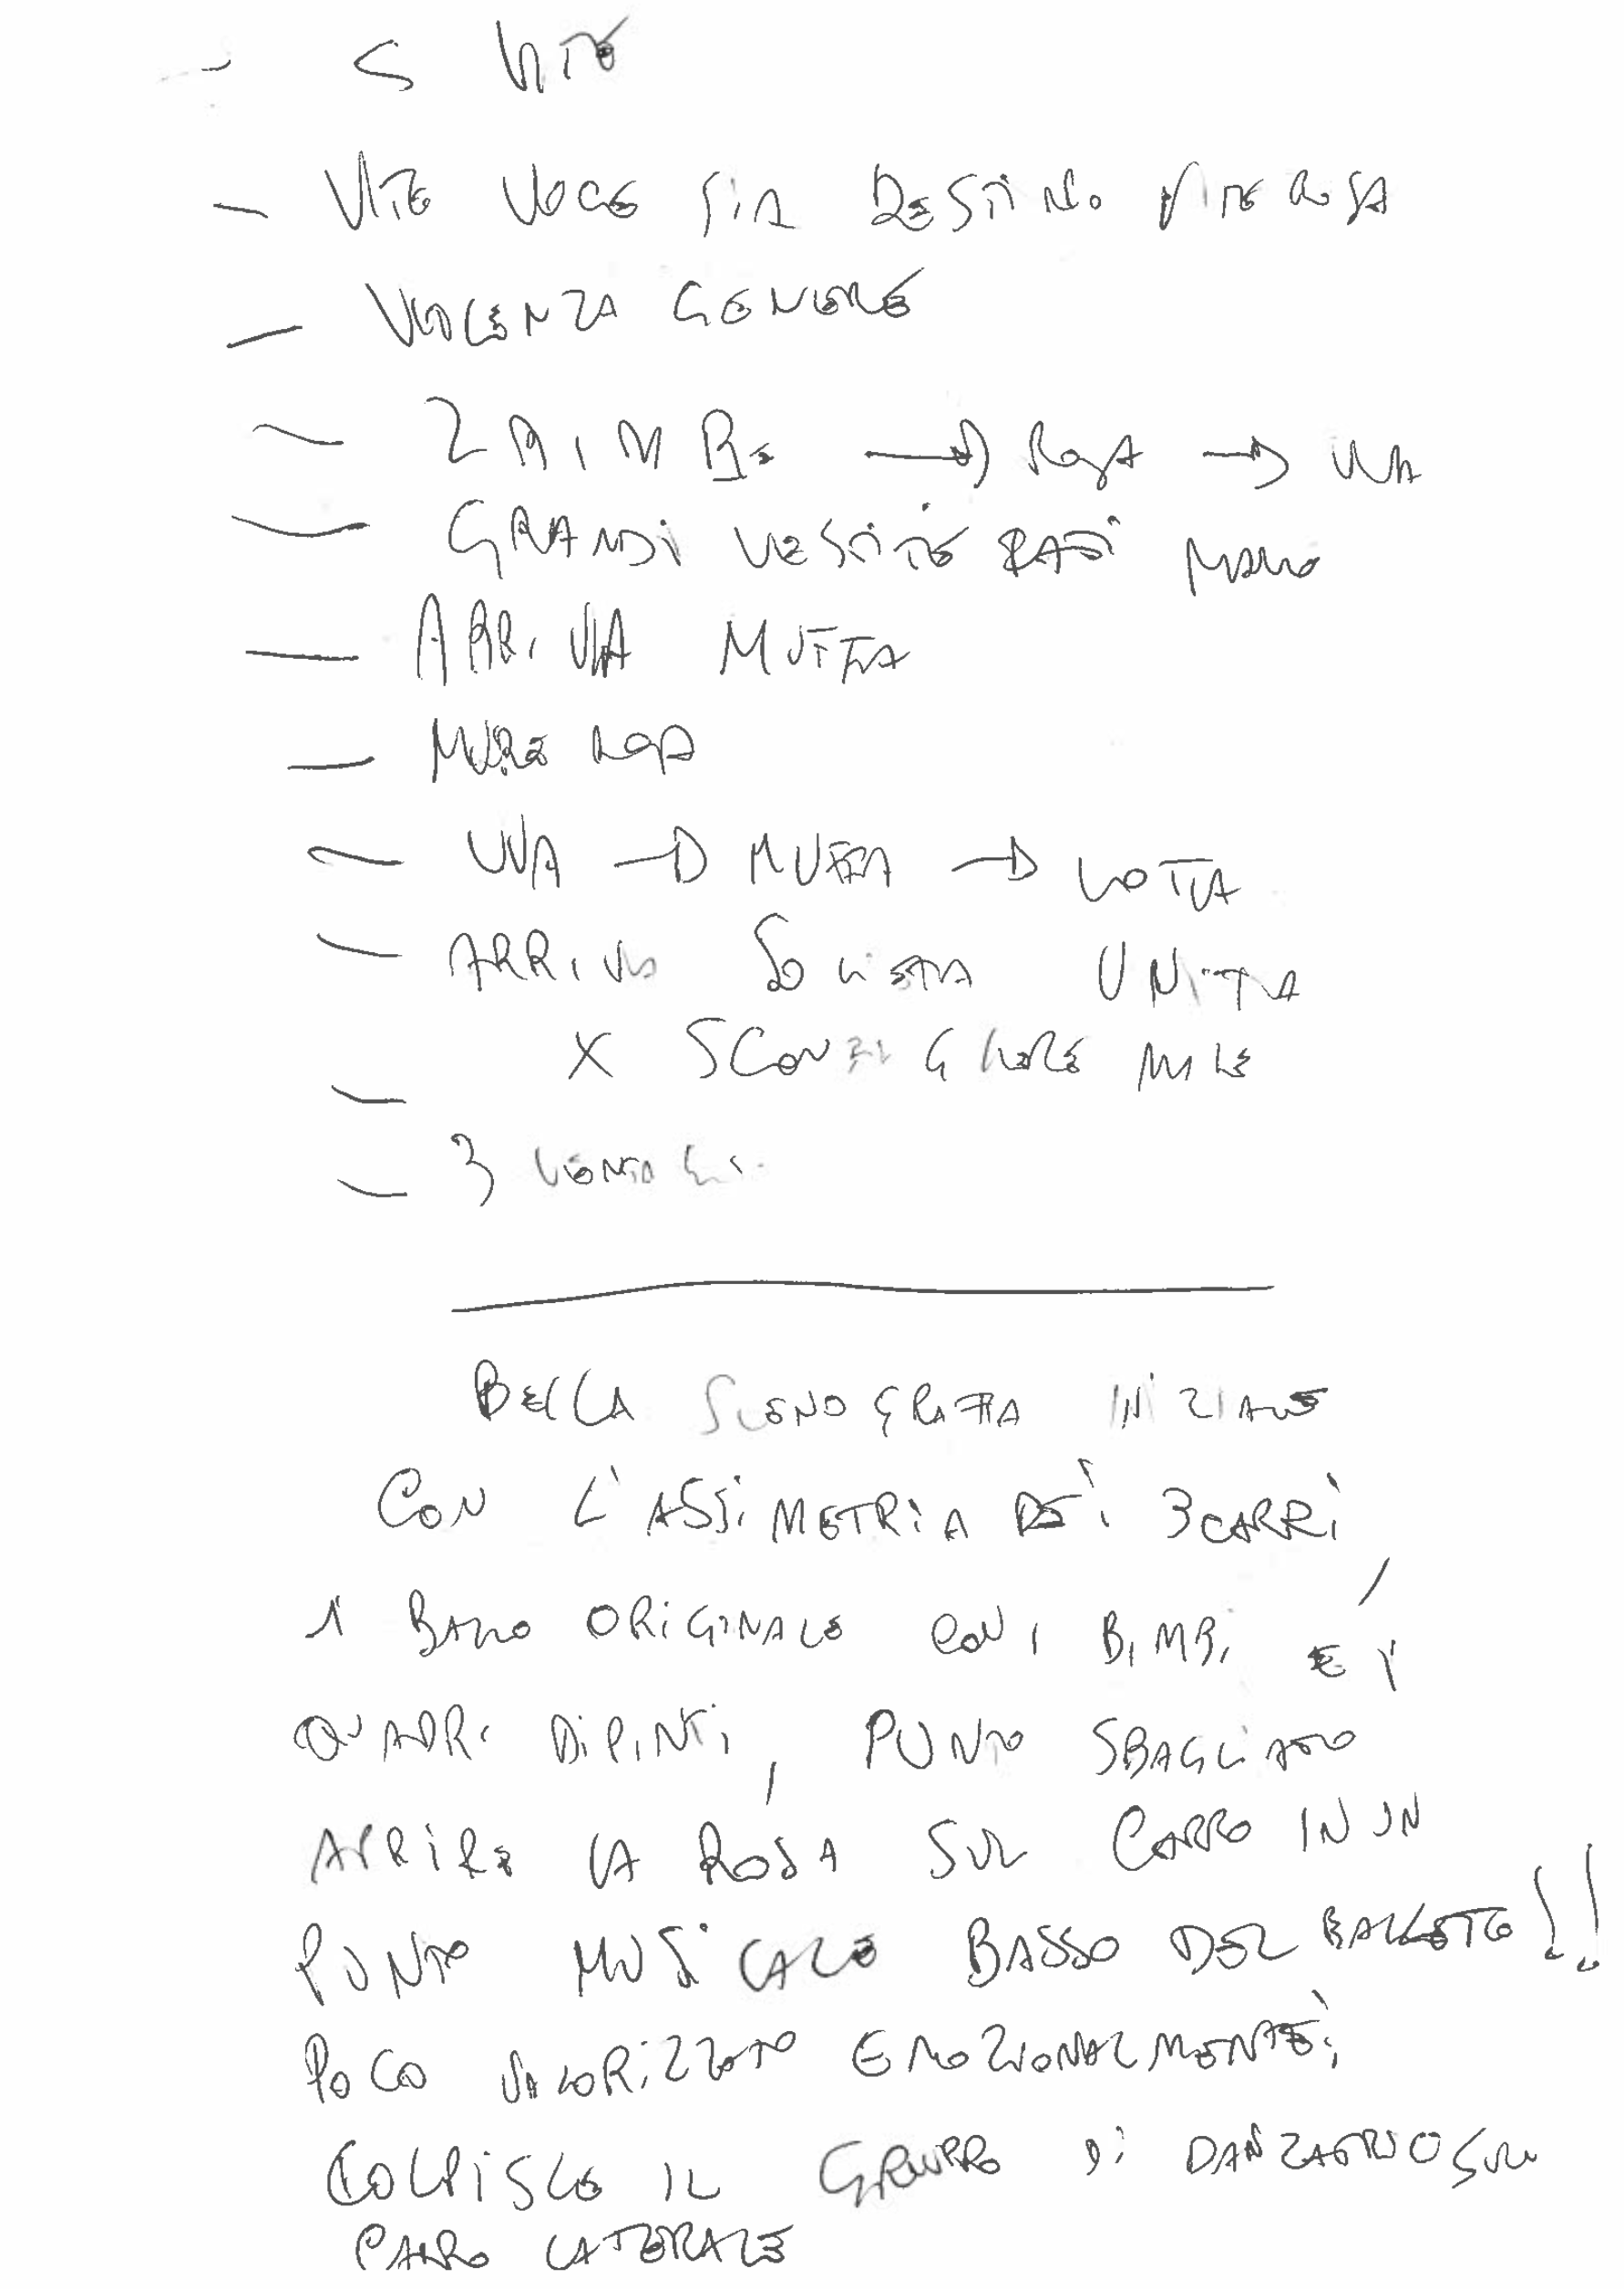 - 5 VITE
- VITE VOCE SIA DESTINO VITE ROSA
- VIOLENZA GENERE
- 2 BIMBE → ROSA → UVA
- GRANDI VESTITE RASI MANO
- ARRIVA MUFFA
- MUORE ROSA
- UVA → MUFFA → LOTTA
- ARRIVO SOLISTA UNITA
- X SCONFIGGERE MALE
- 3
BELLA SCENOGRAFIA INIZIALE
CON L'ASSIMETRIA DEI 3 CARRI
1 BALLO ORIGINALE CON I BIMBI E I
QUADRI DIPINTI, PUNTO SBAGLIATO
APRIRE LA ROSA SUL CARRO IN UN
PUNTO MUSICALE BASSO DEL BALLETTO!!
POCO VALORIZZATO EMOZIONALMENTE;
COLPISCE IL GRUPPO DI DANZATRICI SUL
CARRO LATERALE